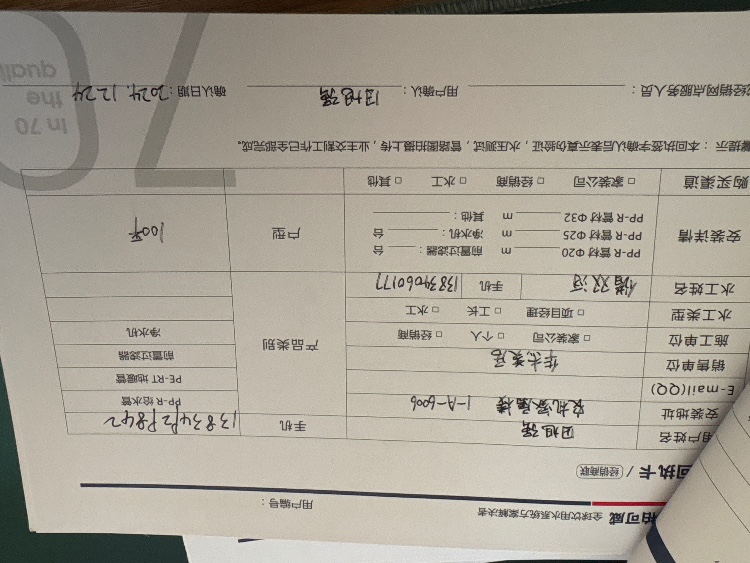 柏可威 全球饮用水系统方案解决者
用户编号：
回执卡 / 经销商联
用户姓名 田旭强 手机
安装地址 1-A-6006 PP-R 给水管
E-mail(QQ) PE-RT 地暖管
销售单位 前置过滤器
施工单位 □ 家装公司 □ 个人 □ 经销商 产品类别 净水机
水工类型 □ 项目经理 □ 工长 □ 水工
水工姓名 手机 13834060177
安装详情 PP-R 管材 Φ20 m 前置过滤器： 台
PP-R 管材 Φ25 m 净水机： 台 户型 100平
PP-R 管材 Φ32 m 其他：
购买渠道 □ 家装公司 □ 经销商 □ 水工 □ 其他
提示：本回执签字确认后表示真伪验证，水压测试，管路图拍摄上传，业主交割工作已全部完成。
经销网点服务人员： 用户确认：田旭强 确认日期：2024.12.24
In 70
the
quali